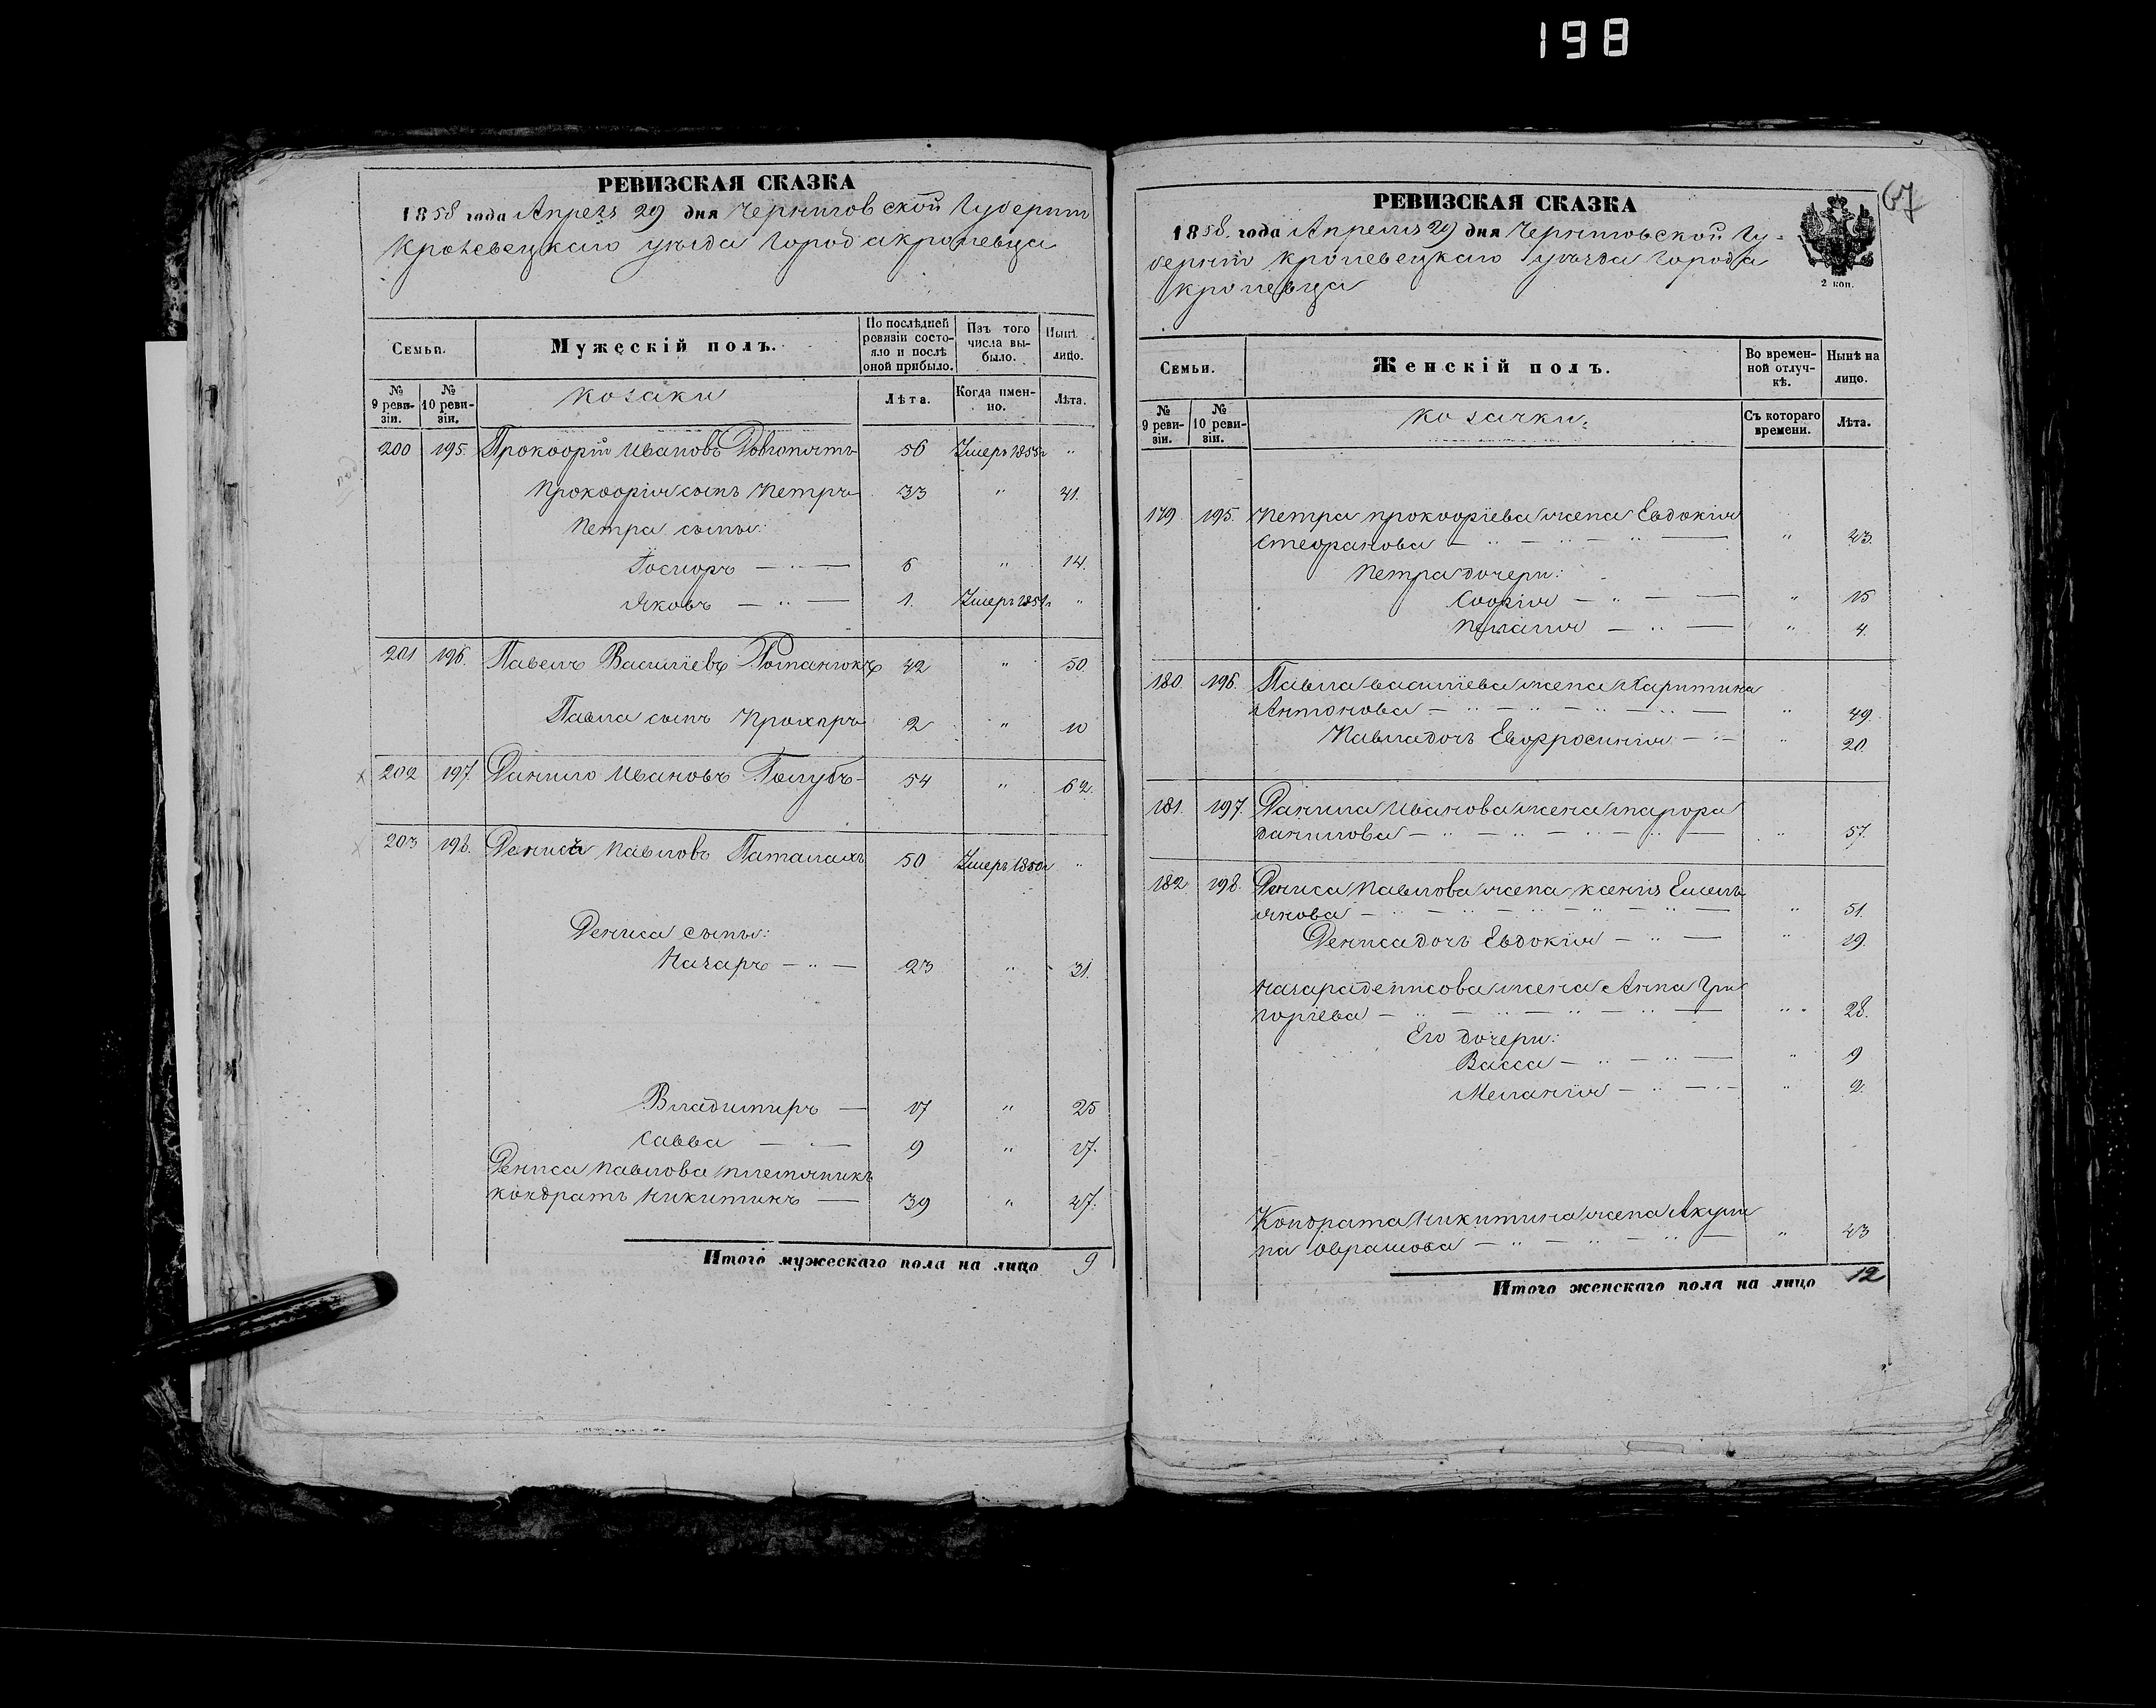 198
РЕВИЗСКАЯ СКАЗКА
1858 года Апреля 29 дня Черниговской Губернии
Кролевецкаго уѣзда Города Кролевца
Семьи.
Мужескій полъ.
По послѣдней ревизіи состояло и послѣ оной прибыло.
Изъ того числа выбыло.
Нынѣ лицо.
№ 9 ревизіи.
№ 10 ревизіи.
козаки
Лѣта.
Когда именно.
Лѣта.
200 195. Прокофій Ивановъ 56 Умеръ 1855г "
Прокофія сынъ Петръ 33 " 41.
Петра сыны:
6 " 14.
Яковъ — " — 1. Умеръ 1851г "
201 196. Павелъ Василіевъ Романюкъ 42 " 50.
Павла сынъ Прохоръ 2 " 10
202 197. Данило Ивановъ Голубъ 54 " 62.
203 198. Денисъ Павловъ Паталахъ 50 Умеръ 1850г "
Дениса сыны:
Назаръ — " — 23 " 31.
Владимиръ — 17 " 25
Савва — " — 9 " 17.
Дениса Павлова племянникъ
Кондратъ Никитинъ — 39 " 47.
Итого мужескаго пола на лицо 9
67
РЕВИЗСКАЯ СКАЗКА
1858. года Апреля 29 дня Черниговской Гу-
берніи Кролевецкаго уѣзда Города
Кролевца
2 коп.
Семьи.
Женскій полъ.
Во временной отлучкѣ.
Нынѣ на лицо.
№ 9 ревизіи.
№ 10 ревизіи.
козачки.
Съ котораго времени.
Лѣта.
179. 195. Петра Прокофіева жена Евдокія
Стефанова — " — " — " — " 43.
Петра дочери:
Софія — " — — " 15
Пелагія — " — " 4.
180. 196. Павла Василіева жена Харитина
Антонова — " — " — " — " — " 49.
Павла дочь Евфросинія — " — " 20.
181. 197. Данила Иванова жена Марфа
Данилова — " — " — " — " — " 57.
182. 198. Дениса Павлова жена Ксенія Емель-
янова — " — " — " — " — " — " 51.
Дениса дочь Евдокія — " — " 19.
Назара Денисова жена Анна Гри
горіева — " — " — " — " — " 28.
Его дочери:
Васса — " — " — " 9
Меланія — " — " — " 2.
Кондрата Никитина жена Акули
на Аврамова — " — " — " — " 43
Итого женскаго пола на лицо 12